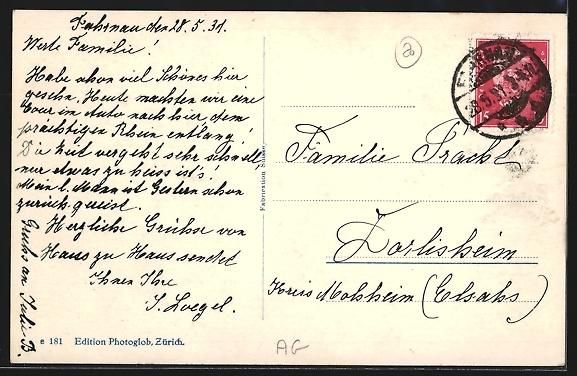 Fahrnau den 28.5.31.
Werte Familie!
Habe schon viel Schönes hier
gesehn. Heute machten wir eine
Tour im Auto nach hier, dem
prächtigen Rhein entlang!
Die Zeit vergeht sehr schnell
nur etwas zu heiss ist's!
Mein l. Mann ist Gestern schon
zurück gereist.
Herzliche Grüsse von
Haus zu Haus sendet
Ihnen Ihre
S. Loegel.
Gruss an Julie B.
e 181 Edition Photoglob, Zürich.
Fabrication Suisse
Familie Pracht
Dorlisheim
Kreis Molsheim (Elsass)
AG